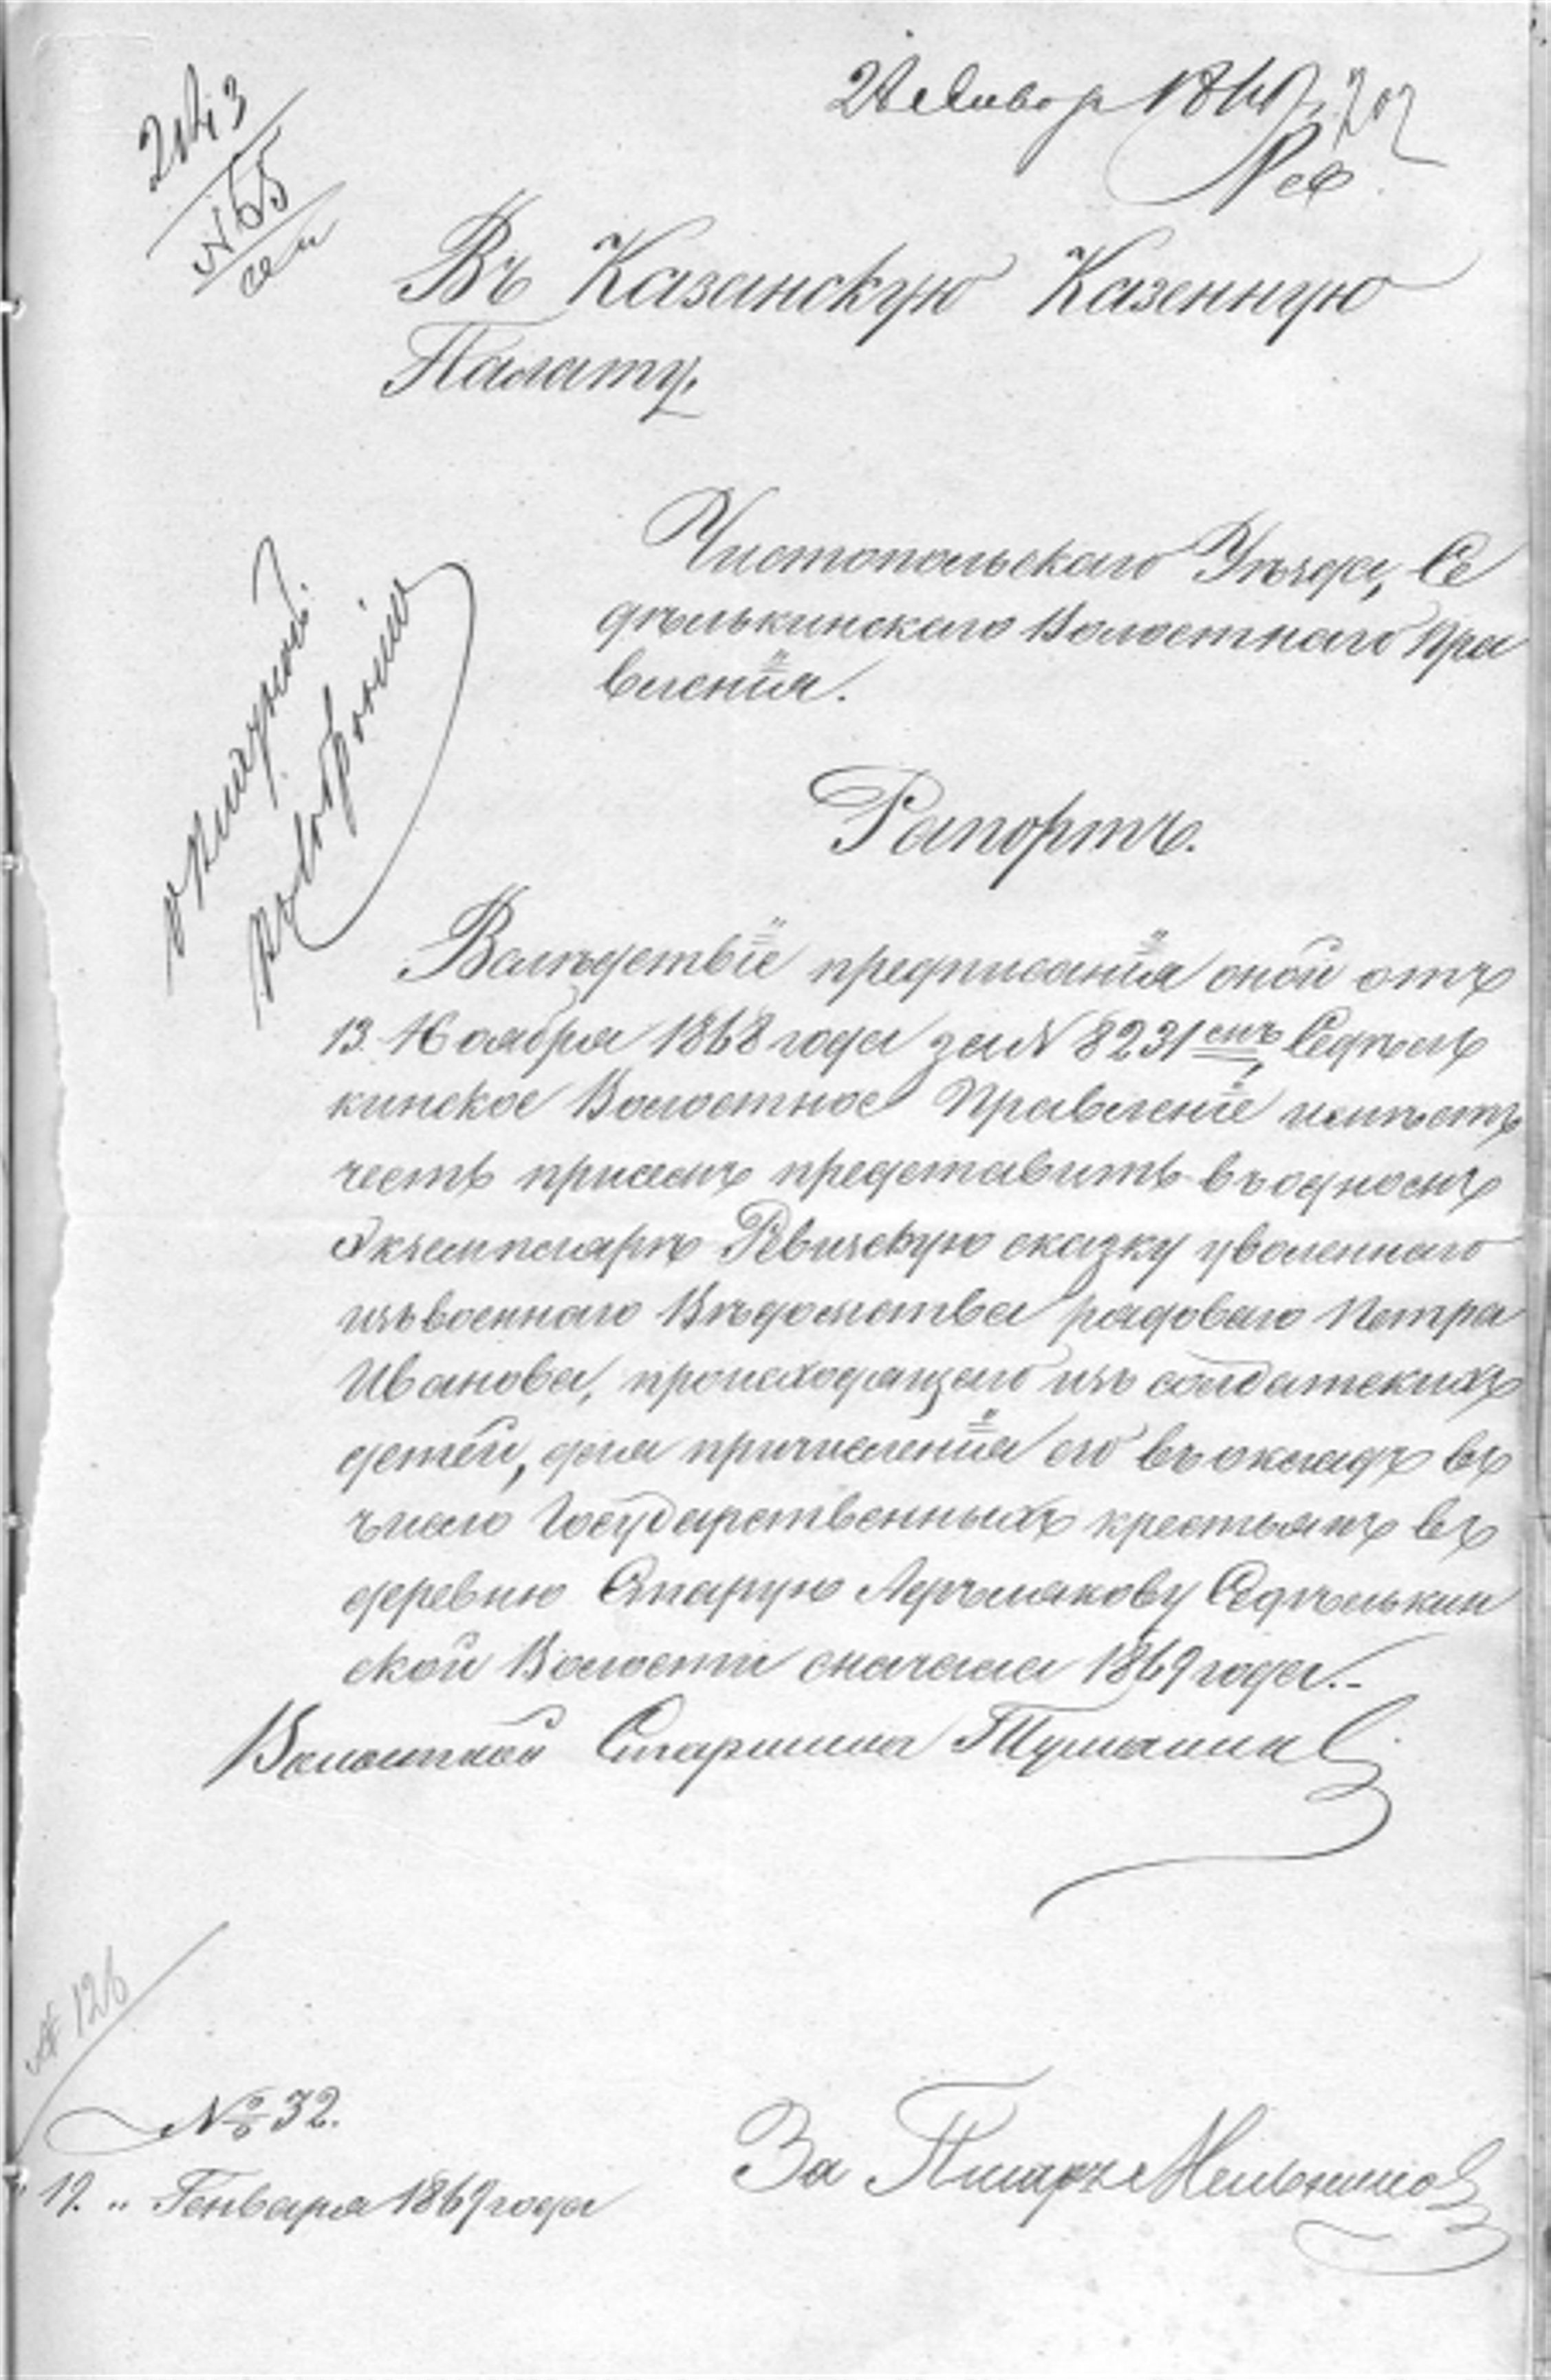 2043
№ 55
24 Января 1869
Въ Казанскую Казенную
Палату.
Чистопольскаго Уѣзда, Се
дѣлькинскаго Волостнаго Пра
вленія.
Рапортъ.
Вслѣдствіе предписанія оной отъ
13 Ноября 1868 года за № 8231мъ, Седѣль
кинское Волостное Правленіе имѣетъ
честь присемъ представить въ одномъ
Экземплярѣ Ревизскую сказку уволеннаго
изъ военнаго Вѣдомства рядоваго Петра
Иванова, происходящаго изъ солдатскихъ
детей, для причисленія его въ окладъ въ
число Государственныхъ крестьянъ въ
деревню Старую Седѣлькин
ской Волости сначала 1869 года.
Волостной Старшина
№ 126
№ 32.
19 " Генваря 1869 года
За Писаря Мельников